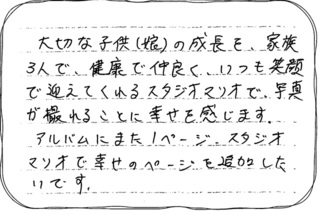 大切な子供(娘)の成長を、家族
3人で、健康で仲良く、いつも笑顔
で迎えてくれるスタジオマリオで、写真
が撮れることに幸せを感じます。
アルバムにまた1ページ、スタジオ
マリオで幸せのページを追加した
いです。